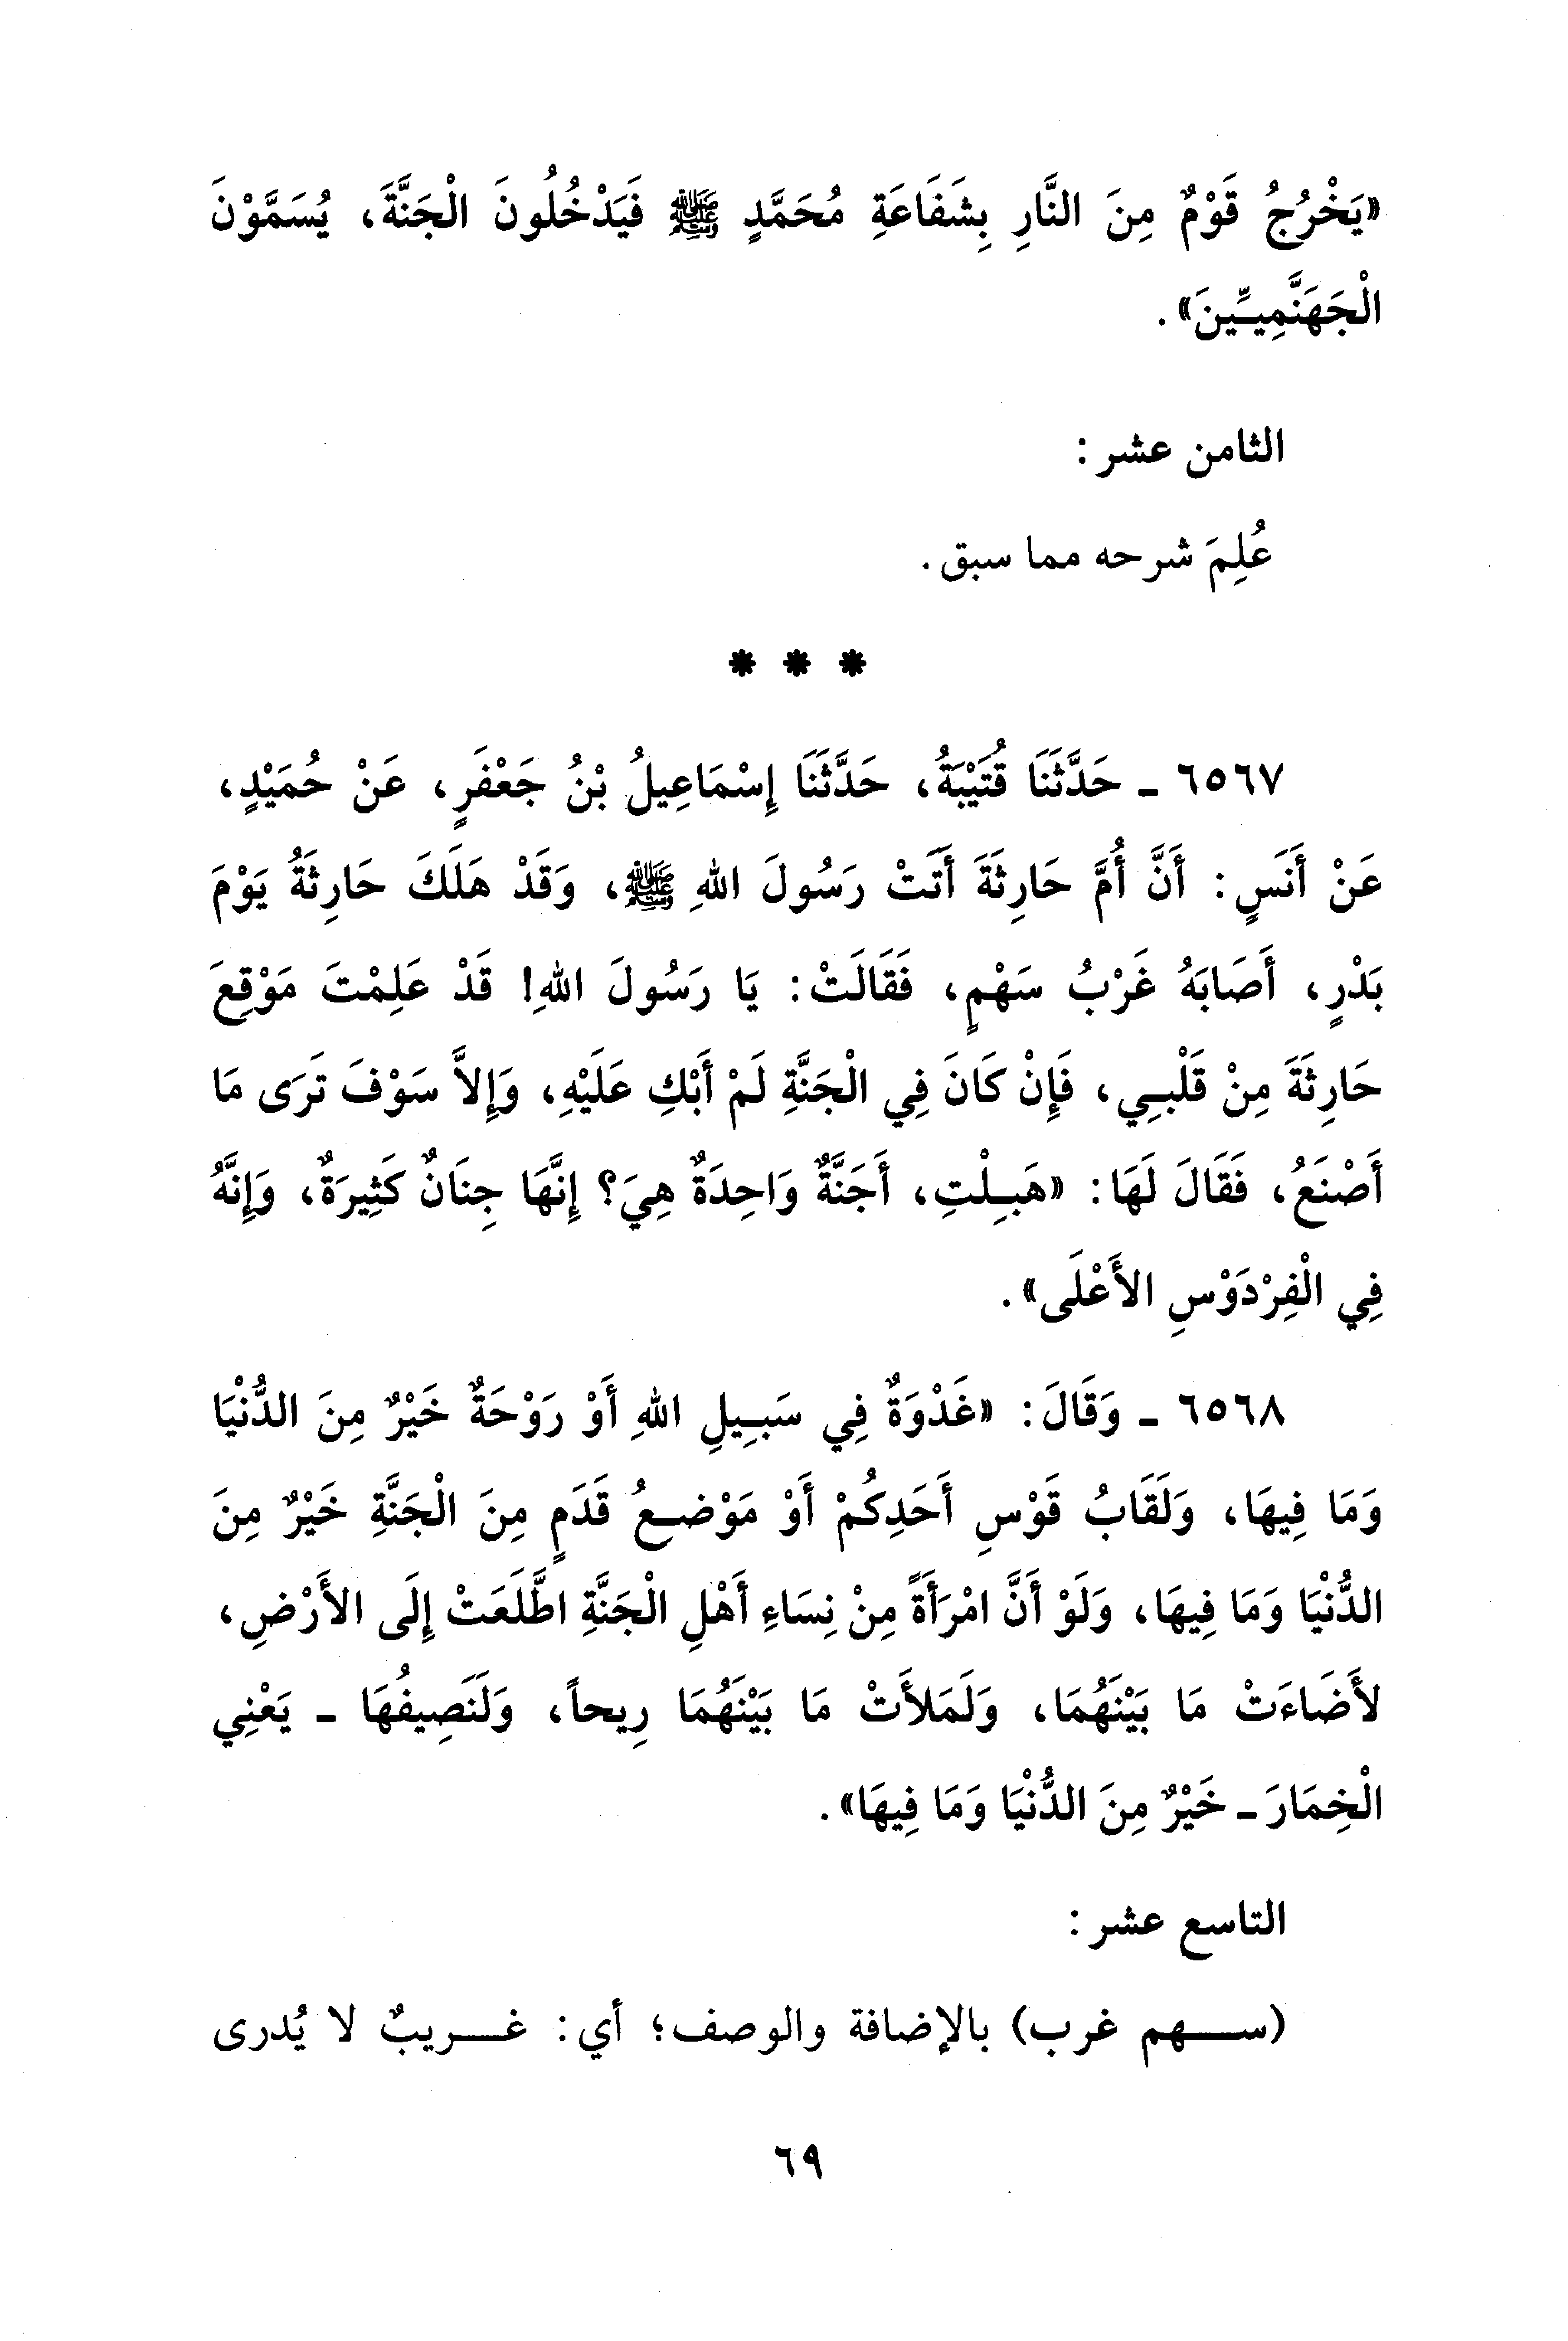 «يَخْرُجُ قَوْمٌ مِنَ النَّارِ بِشَفَاعَةِ مُحَمَّدٍ ﷺ فَيَدْخُلُونَ الْجَنَّةَ، يُسَمَّوْنَ
الْجَهَنَّمِيِّينَ».
الثامن عشر:
عُلِمَ شرحه مما سبق.
* * *
٦٥٦٧ - حَدَّثَنَا قُتَيْبَةُ، حَدَّثَنَا إِسْمَاعِيلُ بْنُ جَعْفَرٍ، عَنْ حُمَيْدٍ،
عَنْ أَنَسٍ: أَنَّ أُمَّ حَارِثَةَ أَتَتْ رَسُولَ اللهِ ﷺ، وَقَدْ هَلَكَ حَارِثَةُ يَوْمَ
بَدْرٍ، أَصَابَهُ غَرْبُ سَهْمٍ، فَقَالَتْ: يَا رَسُولَ اللهِ! قَدْ عَلِمْتَ مَوْقِعَ
حَارِثَةَ مِنْ قَلْبِي، فَإِنْ كَانَ فِي الْجَنَّةِ لَمْ أَبْكِ عَلَيْهِ، وَإِلاَّ سَوْفَ تَرَى مَا
أَصْنَعُ، فَقَالَ لَهَا: «هَبِلْتِ، أَجَنَّةٌ وَاحِدَةٌ هِيَ؟ إِنَّهَا جِنَانٌ كَثِيرَةٌ، وَإِنَّهُ
فِي الْفِرْدَوْسِ الأَعْلَى».
٦٥٦٨ - وَقَالَ: «غَدْوَةٌ فِي سَبِيلِ اللهِ أَوْ رَوْحَةٌ خَيْرٌ مِنَ الدُّنْيَا
وَمَا فِيهَا، وَلَقَابُ قَوْسِ أَحَدِكُمْ أَوْ مَوْضِعُ قَدَمٍ مِنَ الْجَنَّةِ خَيْرٌ مِنَ
الدُّنْيَا وَمَا فِيهَا، وَلَوْ أَنَّ امْرَأَةً مِنْ نِسَاءِ أَهْلِ الْجَنَّةِ اطَّلَعَتْ إِلَى الأَرْضِ،
لأَضَاءَتْ مَا بَيْنَهُمَا، وَلَمَلأَتْ مَا بَيْنَهُمَا رِيحاً، وَلَنَصِيفُهَا - يَعْنِي
الْخِمَارَ - خَيْرٌ مِنَ الدُّنْيَا وَمَا فِيهَا».
التاسع عشر:
(سهم غرب) بالإضافة والوصف؛ أي: غريبٌ لا يُدرى
٦٩